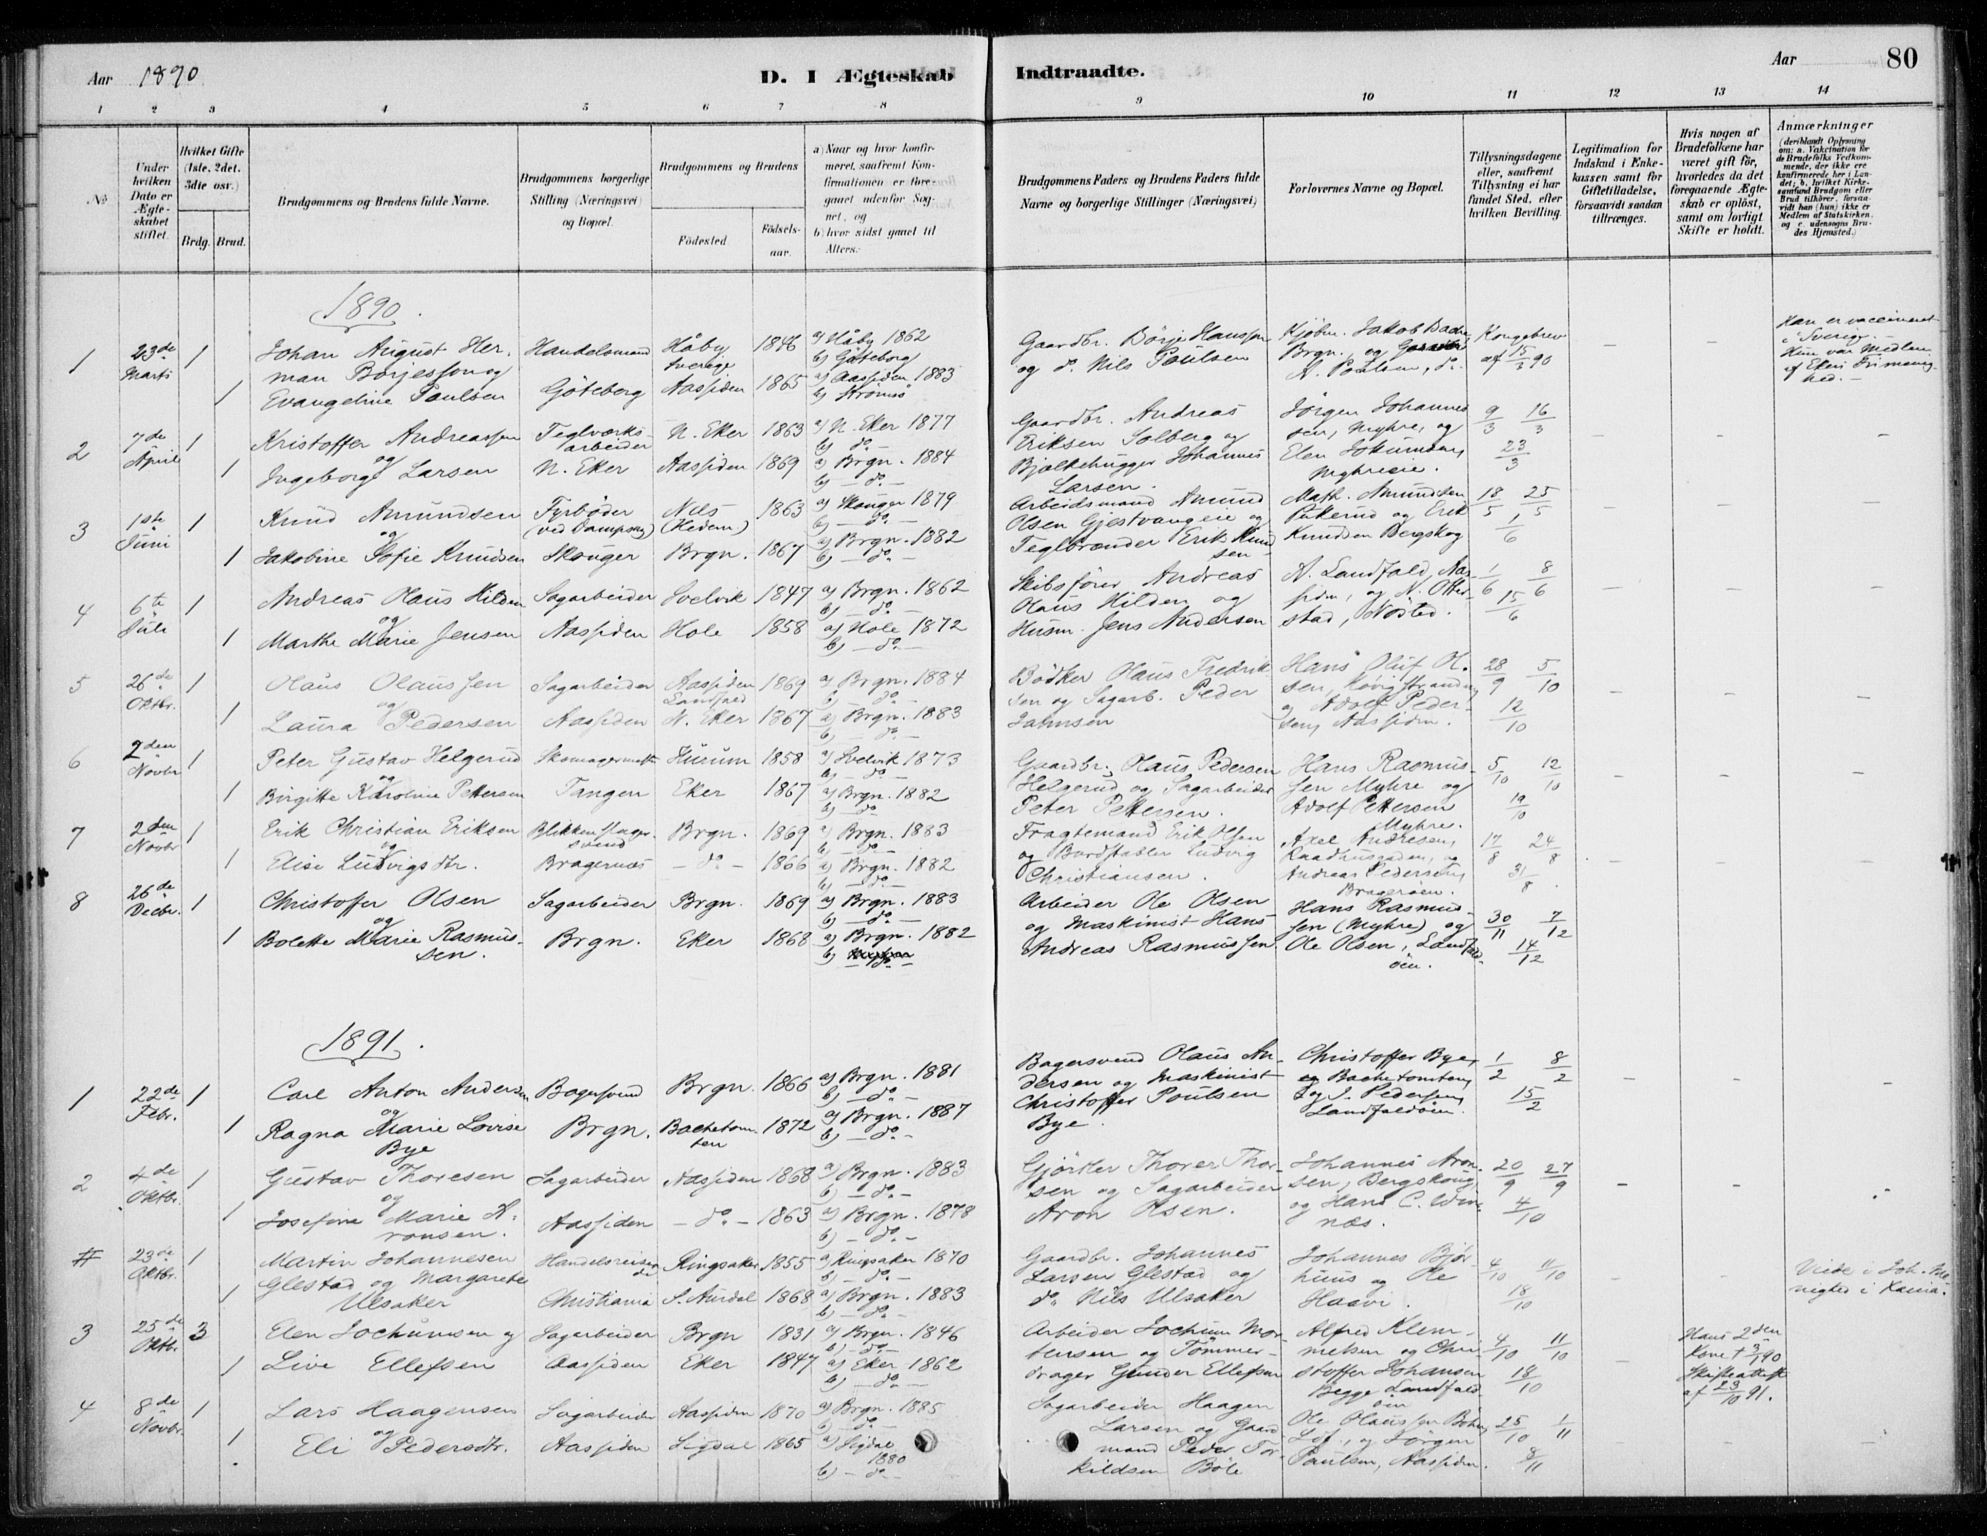 Aar 1890
D. I Ægteskab Indtraadte.
Aar
80
1 2 3 4 5 6 7 8 9 10 11 12 13 14
No
Under hvilken Dato er Ægteskabet stiftet.
Hvilket Gifte (1ste, 2det, 3die osv.)
Brdg. Brud.
Brudgommens og Brudens fulde Navne.
Brudgommens borgerlige Stilling (Næringsvei) og Bopæl.
Brudgommens og Brudens
Fødested.
Fødsels-aar.
a) Naar og hvor konfirmeret, saafremt Konfirmationen er foregaaet udenfor Sognet, og
b) hvor sidst gaaet til Alters.
Brudgommens Faders og Brudens Faders fulde Navne og borgerlige Stillinger (Næringsvei)
Forlovernes Navne og Bopæl.
Tillysningsdagene eller, saafremt Tillysning ei har fundet Sted, efter hvilken Bevilling.
Legitimation for Indskud i Enkekassen samt for Giftetilladelse, forsaavidt saadan tiltrænges.
Hvis nogen af Brudefolkene har været gift før, hvorledes da det foregaaende Ægteskab er opløst, samt om lovligt Skifte er holdt.
Anmærkninger
(deriblandt Oplysning om: a. Vakcination for de Brudefolks Vedkommende, der ikke ere konfirmerede her i Landet; b. hvilket Kirkesamfund Brudgom eller Brud tilhører, forsaavidt han (hun) ikke er Medlem af Statskirken, og c. udensogns Brudes Hjemsted.)
1890.
1 23de Marts 1 Johan August Herman Börjesson og Handelsmand Håby Sverige 1846 a) Håby 1862 b) Göteborg
1 Evangeline Paulsen Göteborg Aassiden 1865 a) Aassiden 1883 b) Strömsö
Gaardbr. Börje Hansson og do. Nils Paulsen
Kjøbm. Jakob Brgn. og A. Paulsen, do.
Kongebrev af 15/3 90
Han er vaccineret i Sverige. Hun var Medlem af Ekers Frimenighed.
2 7de April 1 Kristoffer Andreassen og Teglværksarbeider N. Eker 1863 a) N. Eker 1877 b) do.
1 Ingeborg Larsen N. Eker Aassiden 1869 a) Brgn. 1884 b) do.
Gaardbr. Andreas Eriksen Solberg og Bjælkehugger Johannes Larsen.
Jörgen Johannessen, Myhre, og Elen Jokumsen, Myhreeie.
9/3 16/3 23/3
3 1ste Juni 1 Knud Amundsen og Fyrböder (ved Dampsag) Næs (Hedem) 1863 a) Skouger 1879 b) do.
1 Jakobine Sofie Knudsen Skouger Brgn. 1867 a) Brgn. 1882 b) do.
Arbeidsmand Amund Olsen Gjestvangeie og Teglbrænder Erik Knudsen
Math. Amundsen Pukerud og Erik Knudsen Bergskog
18/5 25/5 1/6
4 6te Juli 1 Andreas Olaus Hilden og Sagarbeider Svelvik 1847 a) Brgn. 1862 b) do.
1 Marthe Marie Jensen Aassiden Hole 1858 a) Hole 1872 b) do.
Skibsfører Andreas Olaus Hilden og Husm. Jens Andersen
A. Landfald, Aassiden, og N. Otterstad, Nösted.
1/6 8/6 15/6
5 26de Oktbr. 1 Olaus Olaussen og Sagarbeider Aassiden Landfald 1869 a) Brgn. 1884 b) do.
1 Laura Pedersen Aassiden N. Eker 1867 a) Brgn. 1883 b) do.
Bödker Olaus Fredriksen og Sagarb. Peder Jahnsen
Hans Oluf Olsen, og Adolf Pedersen, Aassiden.
28/9 5/10 12/10
6 2den Novbr 1 Peter Gustav Helgerud og Skomagermester Hurum 1858 a) Svelvik 1873 b) do.
1 Birgitte Karoline Pettersen Tangen Eker 1867 a) Brgn. 1882 b) do.
Gaardbr. Olaus Pedersen Helgerud og Sagarbeider Peter Pettersen.
Hans Rasmussen Myhre og Adolf Pettersen Myhre.
5/10 12/10 19/10
7 2den Novbr 1 Erik Christian Eriksen og Blikkenslagersvend Brgn. 1869 a) Brgn. 1883 b) do.
1 Elise Ludvigsdtr. Bragernæs do. 1866 a) Brgn. 1882 b) do.
Fragtemand Erik Olsen og Bordstabler Ludvig Christiansen.
Axel Andresen, Raadhusgaden, og Andreas Pedersen, Bragerøen.
17/8 24/8 31/8
8 26de Decbr. 1 Christoffer Olsen og Sagarbeider Brgn. 1869 a) Brgn. 1883 b) do.
1 Bolette Marie Rasmussen. Brgn. Eker 1868 a) Brgn. 1882 b) do.
Arbeider Ole Olsen og Maskinist Hans Andreas Rasmussen.
Hans Rasmussen (Myhre) og Ole Olsen, Landfaldöen.
30/11 7/12 14/12
1891.
1 22de Febr. 1 Carl Anton Andersen og Bagersvend Brgn. 1866 a) Brgn. 1881 b) do.
1 Ragna Marie Lovise Bye Brgn. Bachetomten 1872 a) Brgn. 1887 b) do.
Bagersvend Olaus Andersen og Maskinist Christoffer Poulsen Bye.
Christoffer Bye, Bachetomten, og J. Pedersen, Landfaldöen.
1/2 8/2 15/2
2 4de Oktbr. 1 Gustav Thoresen og Sagarbeider Aassiden 1868 a) Brgn. 1883 b) do.
1 Josefine Marie Aronsen. Aassiden do. 1863 a) Brgn. 1878 b) do.
Gjörtler Thorer Thorsen og Sagarbeider Aron Olsen.
Johannes Aronsen, Bergskoug og Hans C.
20/9 27/9 4/10
# 23de Oktbr. 1 Martin Johannesen Glestad og Handelsreisende Ringsaker 1855 a) Ringsaker 1870 b) do.
1 Margarete Ulsaker Christiania S. Aurdal 1868 a) Brgn. 1883 b) do.
Gaardbr. Johannes Larsen Glestad og do. Nils Ulsaker
Johannes Bjørhuus og Ole Haavi.
4/10 11/10 18/10
Viede i Joh. Menighed i Xania.
3 25de Oktbr. 3 Elen Jochumsen og Sagarbeider Brgn 1831 a) Brgn. 1846 b) do.
1 Live Ellefsen Aassiden Eker 1847 a) Eker 1862 b) do.
Arbeider Jochum Mortensen og Tømmerdrager Gunder Ellefsen
Alfred Klemmetsen og Christoffer Johansen Begge Landfaldöen
4/10 11/10 18/10
Hans 2den Kone † 3/1 90 Skifteattest af 23/10 91.
4 8de Novbr. 1 Lars Haagensen og Sagarbeider Aassiden 1870 a) Brgn. 1885 b) do.
1 Eli Pedersdtr. Aassiden Sigdal 1865 a) Sigdal 1880 b) do.
Sagarbeider Haagen Larsen og Gaardmand Peder Torkildsen Böle
Ole Olaussen og Jörgen Paulsen, Aassiden.
25/10 1/11 8/11